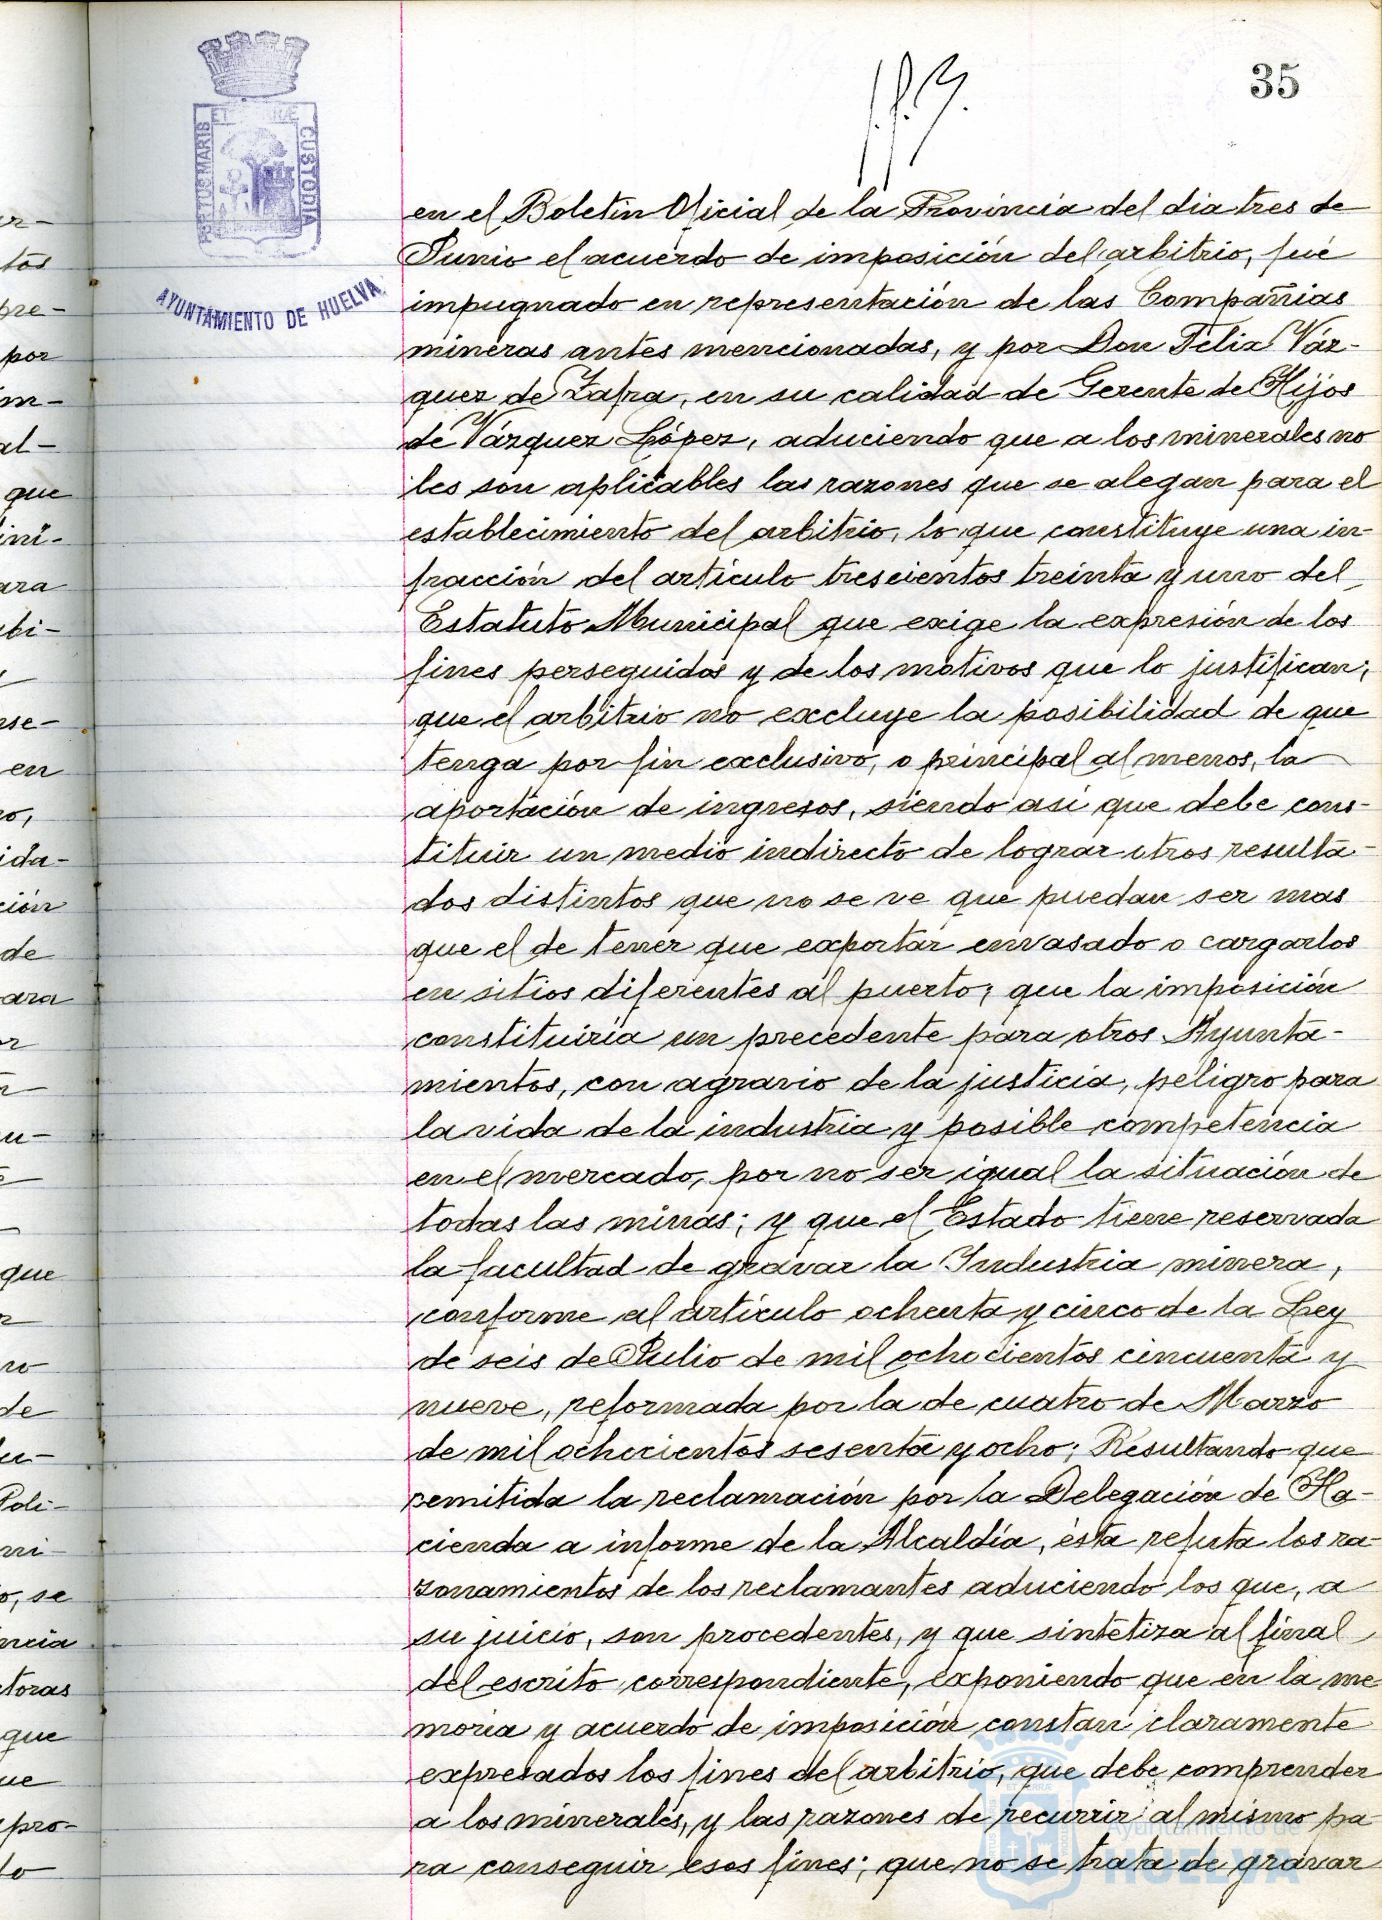 35
PORTUS MARIS ET TERRÆ CUSTODIA
AYUNTAMIENTO DE HUELVA
en el Boletin Oficial de la Provincia del dia tres de
Junio el acuerdo de imposición del arbitrio, fué
impugnado en representación de las Compañias
mineras antes mencionadas, y por Don Felix Váz-
quez de Zafra, en su calidad de Gerente de Hijos
de Vázquez López, aduciendo que a los minerales no
les son aplicables las razones que se alegan para el
establecimiento del arbitrio, lo que constituye una in-
fracción del artículo trescientos treinta y uno del
Estatuto Municipal que exige la expresión de los
fines perseguidos y de los motivos que lo justifican;
que el arbitrio no excluye la posibilidad de que
tenga por fin exclusivo, o principal al menos, la
aportación de ingresos, siendo así que debe cons-
tituir un medio indirecto de lograr otros resulta-
dos distintos que no se ve que puedan ser mas
que el de tener que exportar envasado o cargarlos
en sitios diferentes al puerto; que la imposición
constituiría un precedente para otros Ayunta-
mientos, con agravio de la justicia, peligro para
la vida de la industria y posible competencia
en el mercado, por no ser igual la situación de
todas las minas; y que el Estado tiene reservada
la facultad de gravar la Industria minera,
conforme al artículo ochenta y cinco de la Ley
de seis de Julio de mil ochocientos cincuenta y
nueve, reformada por la de cuatro de Marzo
de mil ochocientos sesenta y ocho; Resultando que
remitida la reclamación por la Delegación de Ha-
cienda a informe de la Alcaldía, ésta refuta los ra-
zonamientos de los reclamantes aduciendo los que, a
su juicio, son procedentes, y que sintetiza al final
del escrito correspondiente, exponiendo que en la me-
moria y acuerdo de imposición constan claramente
expresados los fines del arbitrio, que debe comprender
a los minerales, y las razones de recurrir al mismo pa-
ra conseguir esos fines; que no se trata de gravar
Ayuntamiento de
HUELVA